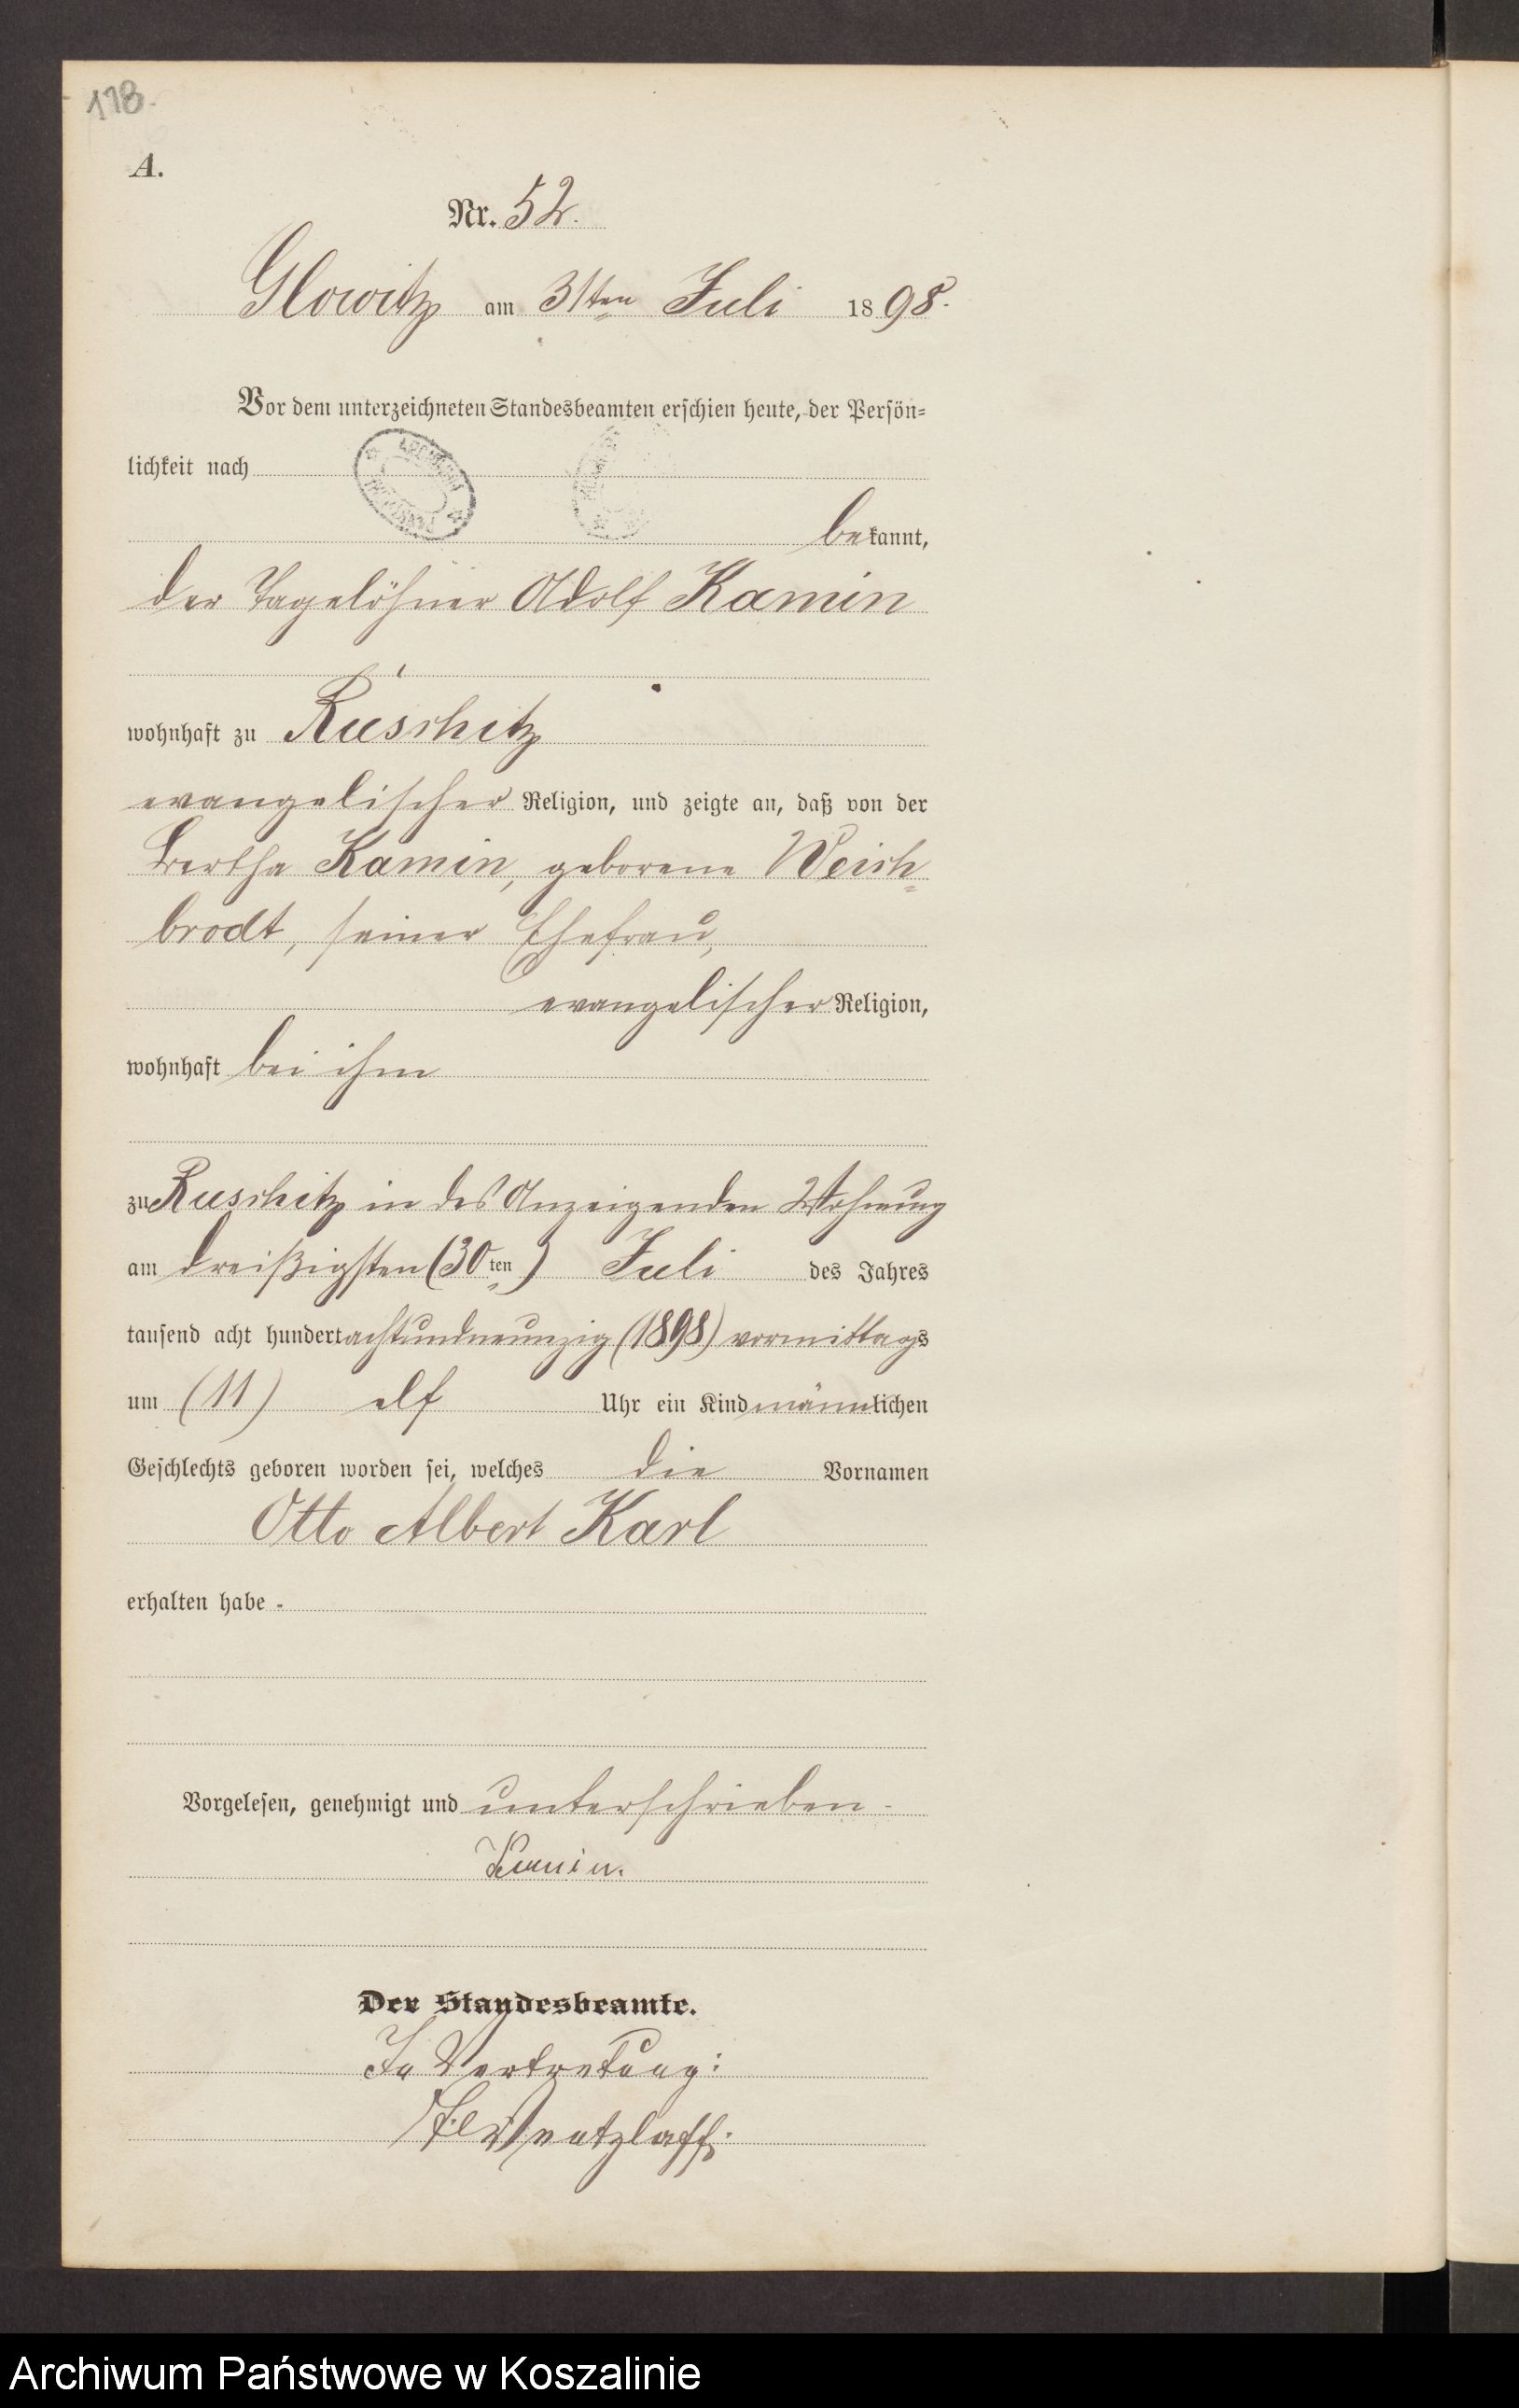 118.
A.
Nr. 52.
Glowitz am 31ten Juli 1898.
Vor dem unterzeichneten Standesbeamten erschien heute, der Persön-
lichkeit nach
bekannt,
der Tagelöhner Adolf Kamin
wohnhaft zu Ruschitz
evangelischer Religion, und zeigte an, daß von der
Bertha Kamin, geborene Weich-
brodt, seiner Ehefrau,
evangelischer Religion,
wohnhaft bei ihm
zu Ruschitz in des Anzeigenden Wohnung
am dreißigsten (30ten) Juli des Jahres
tausend acht hundert achtundneunzig (1898) vormittags
um (11) elf Uhr ein Kind männlichen
Geschlechts geboren worden sei, welches die Vornamen
Otto Albert Karl
erhalten habe.
Vorgelesen, genehmigt und unterschrieben.
Kamin.
Der Standesbeamte.
In Vertretung:
Wentzlaff.
Archiwum Państwowe w Koszalinie